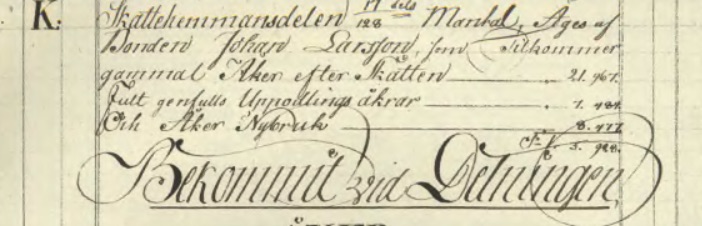 K: Skattehemmansdelen 17/128 dels Mantal, Äges af
Bonden Johan Larsson, som Tilkommer
gammal Åker efter Skatten 21. 967.
Fult genfulls Upodlings åkrar 7. 484.
Och Åker Nybruk 8. 477
5. 928.
Bekommit vid Delningen